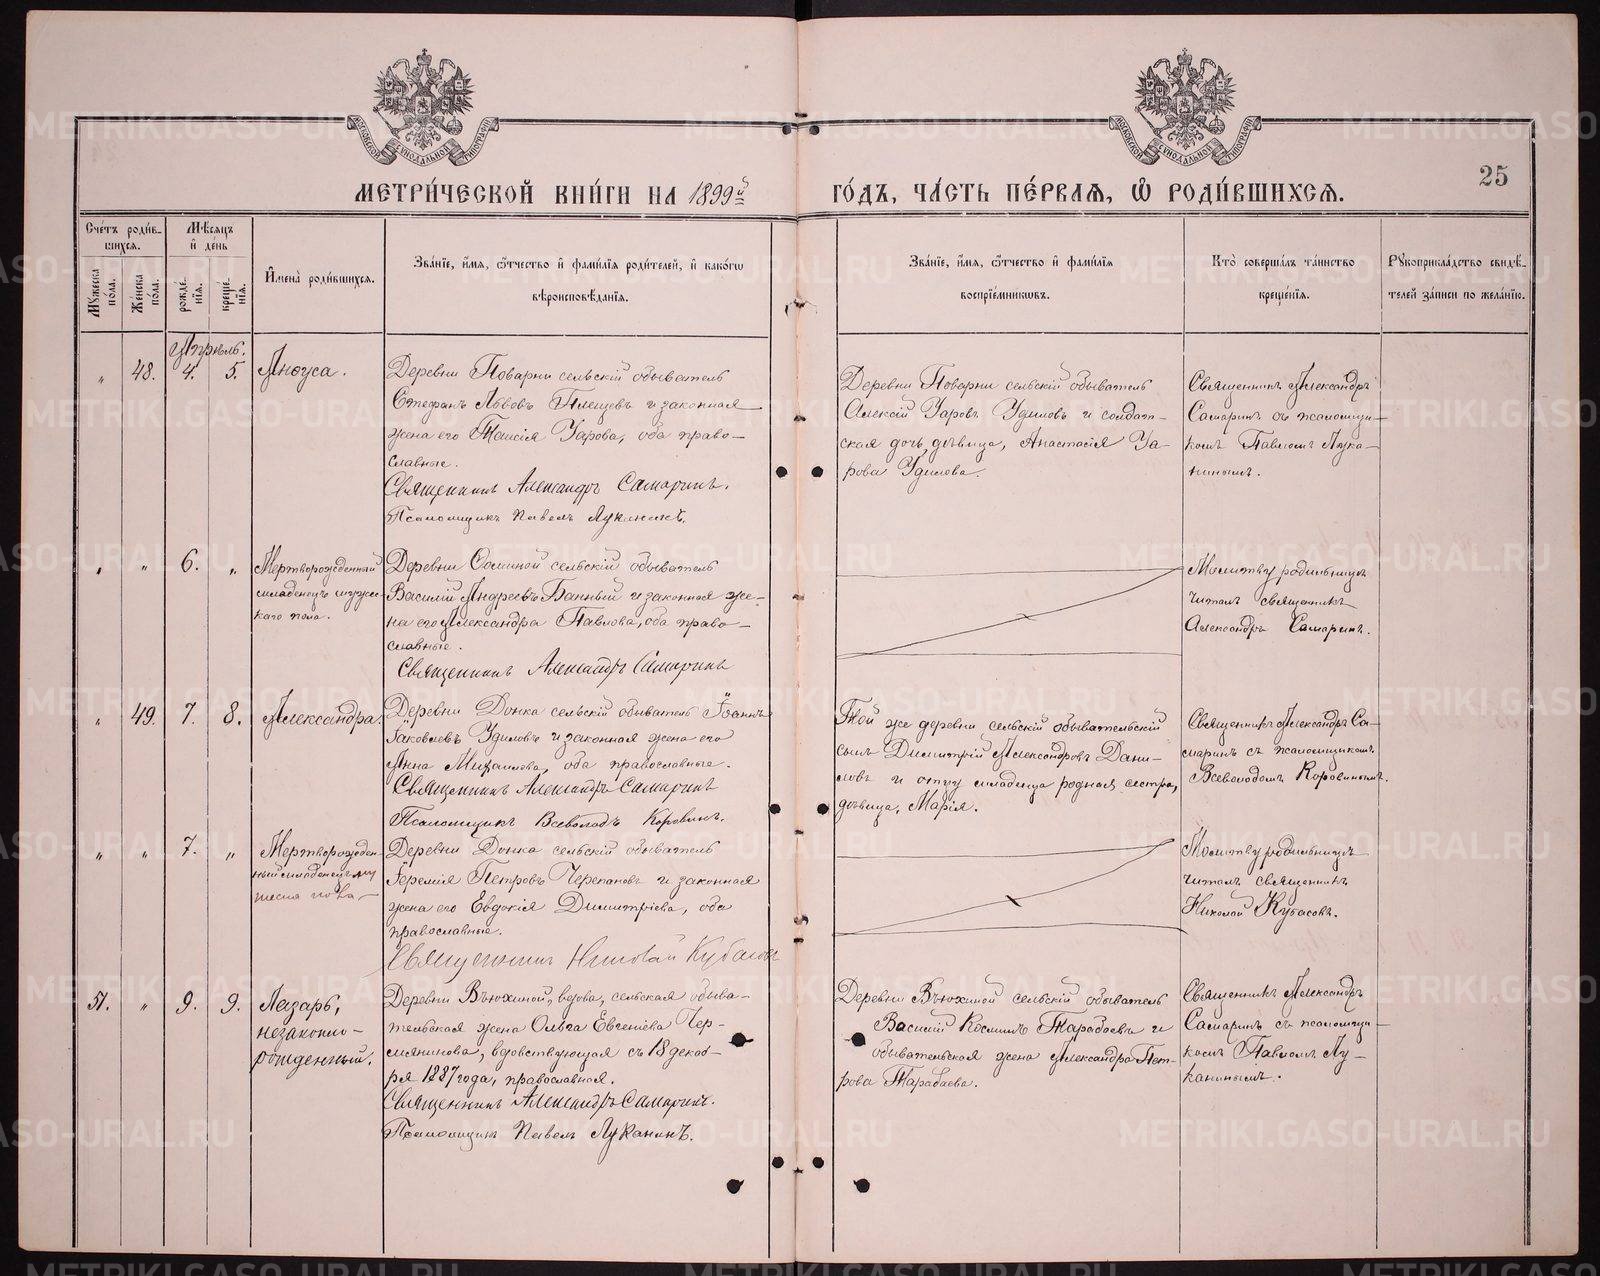 МЕТРИ́ЧЕСКОЙ КНИ́ГИ НА 1899й ГО́ДЪ, ЧА́СТЬ ПЕ́РВАЯ, Ѿ РОДИ́ВШИХСЯ.
25
Сче́тъ роди́в-
шихся.
Му́жеска по́ла.
Же́нска по́ла.
Мѣ́сяцъ и де́нь
рожде́-нія.
креще́-нія.
И҆мена̀ роди́вшихся.
Зва́ніе, и҆́мя, ѻ҆́тчество и҆ фами́лія роди́телей, и҆ како́гѡ
вѣроисповѣ́данія.
Зва́ніе, и҆́мя, ѻ҆́тчество и҆ фами́лія
воспріе́мникѡвъ.
Кто̀ соверша́лъ та́инство
креще́нія.
Рꙋкоприкла́дство свидѣ́-
телей за́писи по жела́нію.
Апрѣль.
„ 48. 4. 5.
Деревни Поварни сельскій обыватель
Стефанъ Львовъ Плещевъ и законная
жена его Таисія Уарова, оба право-
славные.
Священникъ Александръ Самаринъ.
Псаломщикъ Павелъ Луканинъ.
Деревни Поварни сельскій обыватель
Алексій Уаровъ Удиловъ и солдат-
ская дочь, дѣвица, Анастасія Уа-
рова Удилова.
Священникъ Александръ
Самаринъ съ псаломщи-
комъ Павломъ Лука-
нинымъ.
„ „ 6. „
Мертворожденный
младенецъ мужес-
каго пола.
Деревни Соминой сельскій обыватель
Василій Андреевъ Банный и законная же-
на его Александра Павлова, оба право-
славные.
Священникъ Александръ Самаринъ
Молитву родильницѣ
читалъ священникъ
Александръ Самаринъ.
„ 49. 7. 8.
Александра.
Деревни Донка сельскій обыватель Іоаннъ
Іаковлевъ Удиловъ и законная жена его
Анна Михаилова, оба православные.
Священникъ Александръ Самаринъ
Псаломщикъ Всеволодъ Коровинъ.
Той же деревни, сельскій обывательскій
сынъ Димитрій Александровъ Дани-
ловъ и отцу младенца родная сестра,
дѣвица, Марія.
Священникъ Александръ Са-
маринъ съ псаломщикомъ
Всеволодомъ Коровинымъ.
„ „ 7. „
Мертворожден-
ный младенецъ му
жеска пола
Деревни Донка сельскій обыватель
Іеремія Петровъ Черепановъ и законная
жена его Евдокія Димитріева, оба
православные.
Священникъ Николай Кубасовъ
Молитву родильницѣ
читалъ священникъ
Николай Кубасовъ.
51. „ 9. 9.
Лазарь,
незаконно-
рожденный.
Деревни Вьюхиной, вдова, сельская обыва-
тельская жена Ольга Евгеніева Чер-
мянинова, вдовствующая съ 18 декаб-
ря 1887 года, православная.
Священникъ Александръ Самаринъ.
Псаломщикъ Павелъ Луканинъ.
Деревни Вьюхиной сельскій обыватель
Василій Косминъ Тарабаевъ и
обывательская жена Александра Пет-
рова Тарабаева.
Священникъ Александръ
Самаринъ съ псаломщи-
комъ Павломъ Лу-
канинымъ.